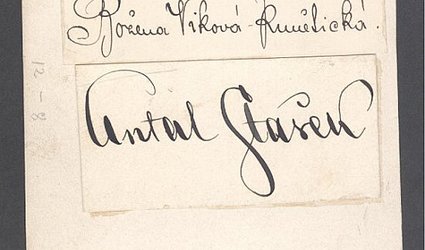 Božena Viková-Kunětická.
Antal Stašek
12-8